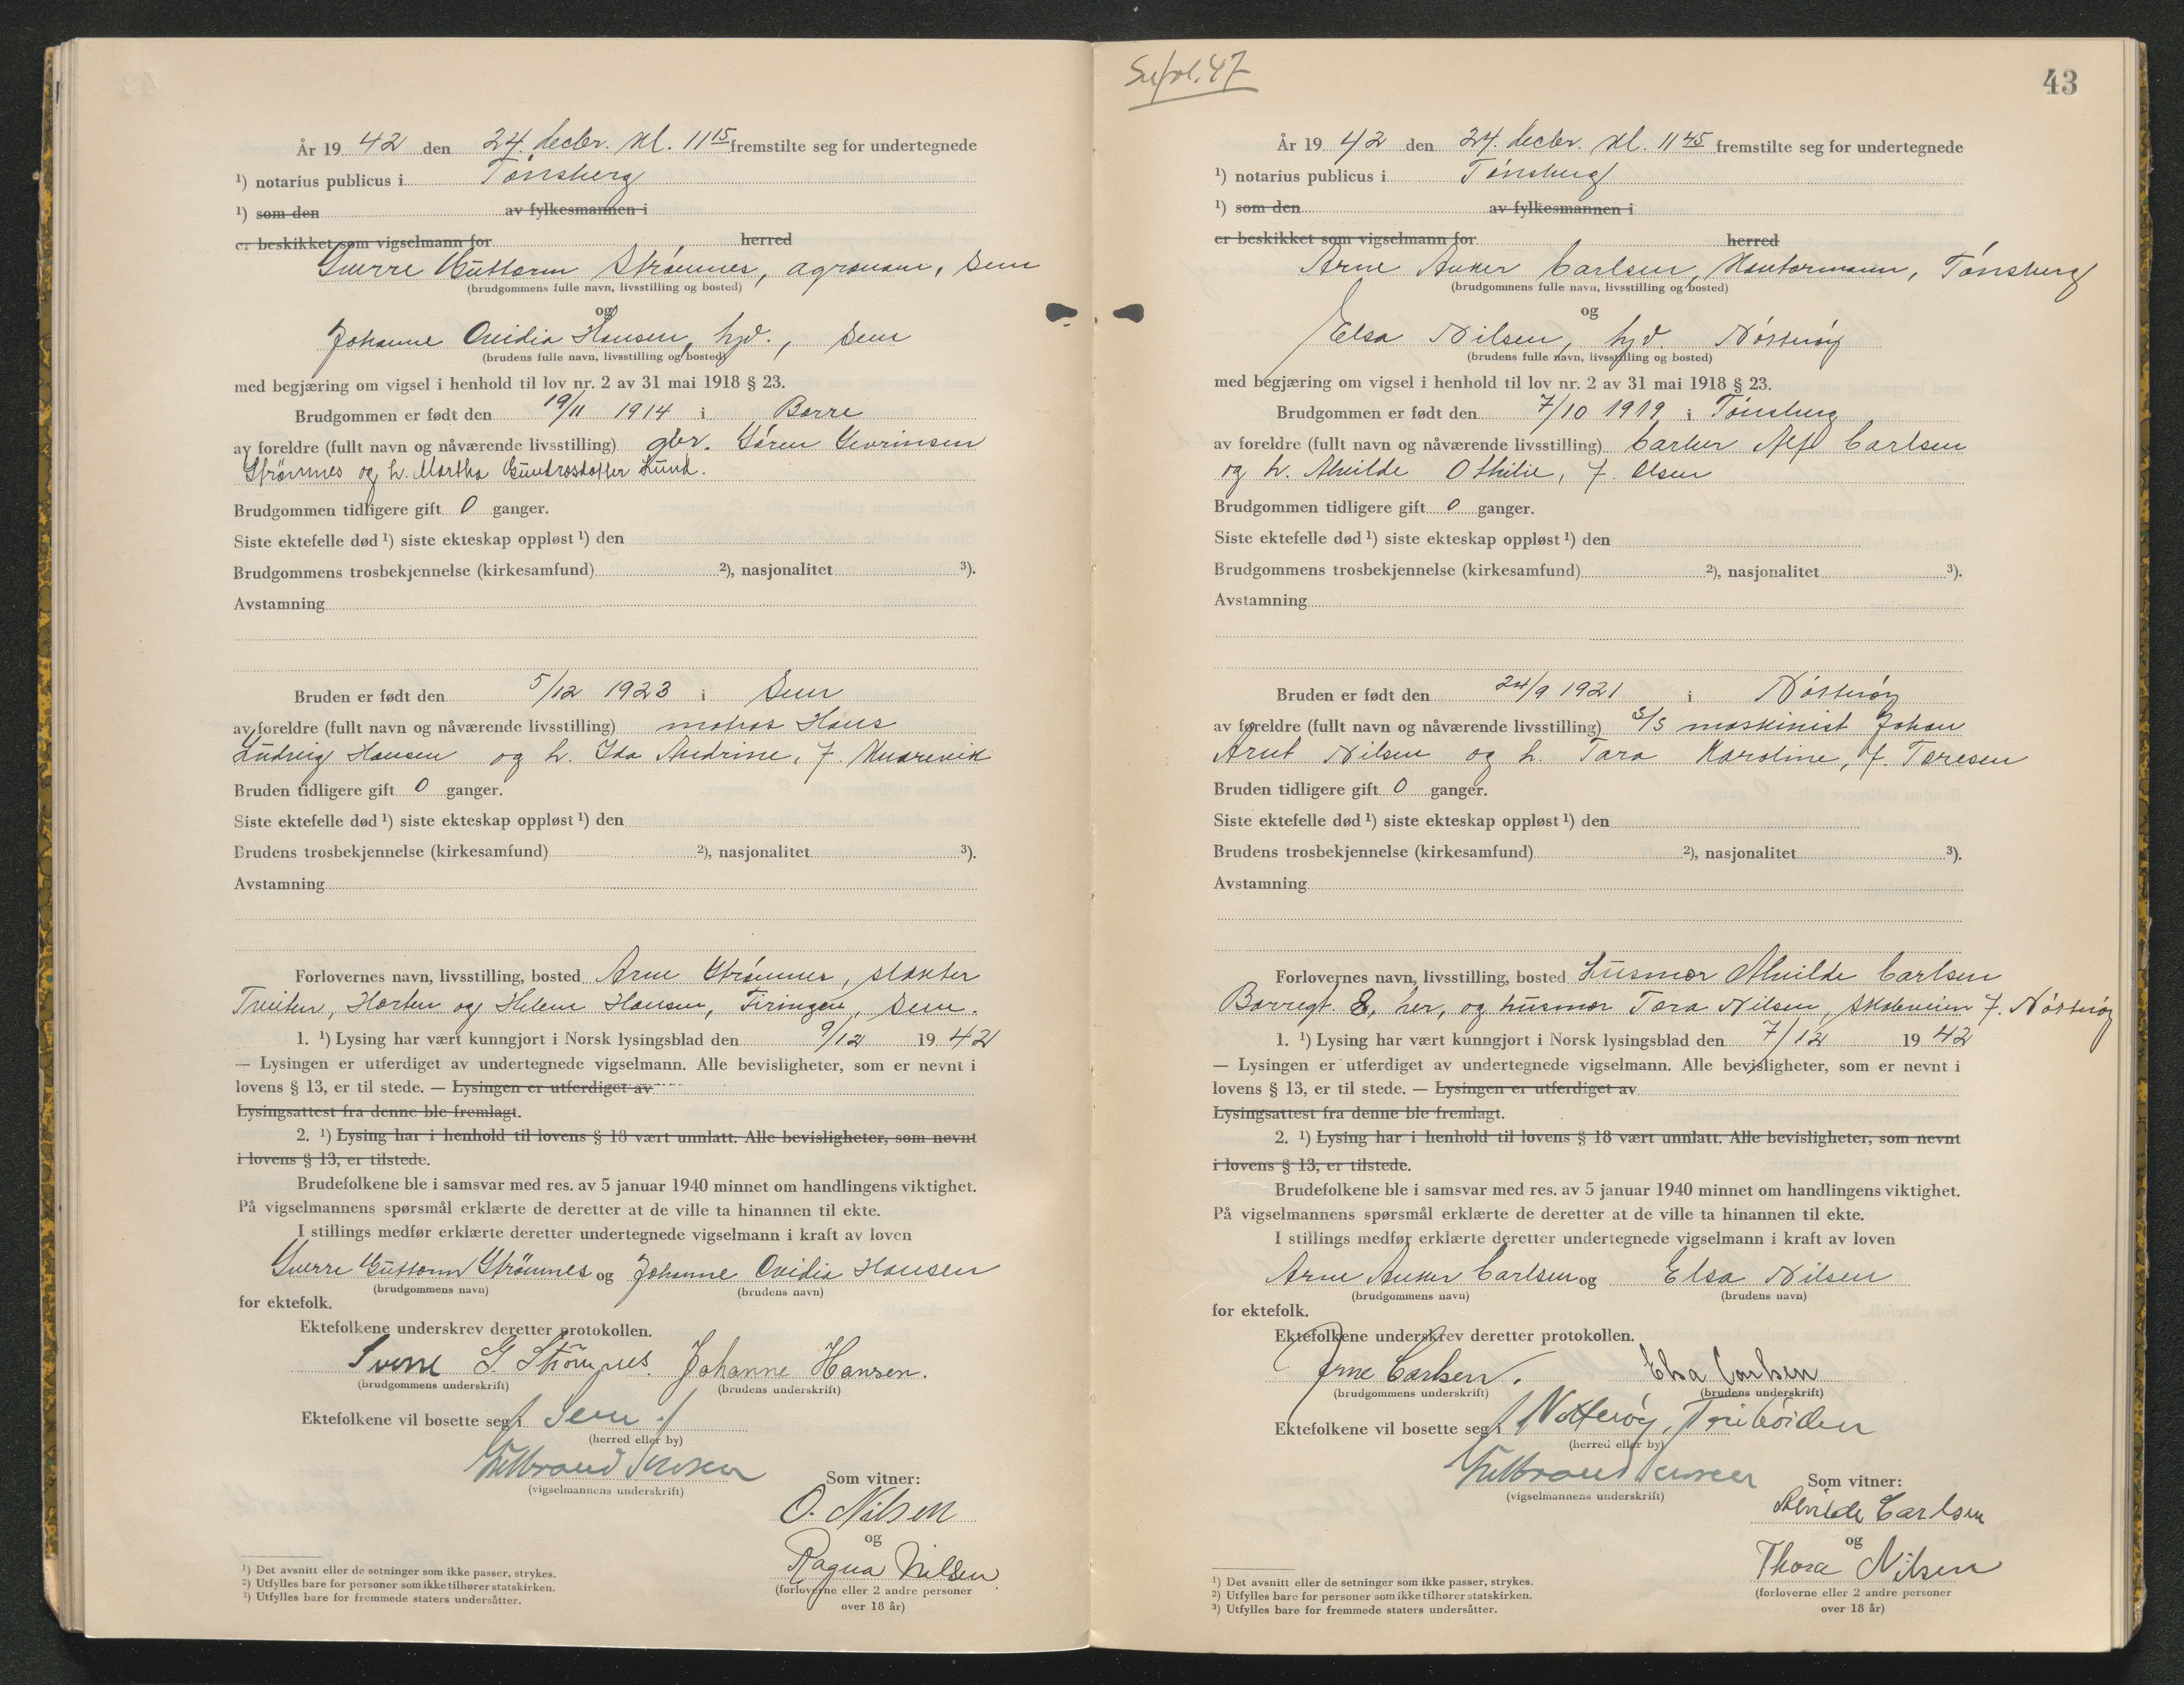 År 19 42 den 24. decbr. kl. 11 15 fremstilte seg for undertegnede
¹) notarius publicus i Tønsberg
¹) som den av fylkesmannen i
er beskikket som vigselmann for herred
Sverre Guttorm Strømnes, agronom, Sem
(brudgommens fulle navn, livsstilling og bosted)
og
Johanne Ovidia Hansen, hjd., Sem
(brudens fulle navn, livsstilling og bosted)
med begjæring om vigsel i henhold til lov nr. 2 av 31 mai 1918 § 23.
Brudgommen er født den 19/11 1914 i Borre
av foreldre (fullt navn og nåværende livsstilling) gbr. Søren Severinsen
Strømnes og h. Martha Lund.
Brudgommen tidligere gift 0 ganger.
Siste ektefelle død ¹) siste ekteskap oppløst ¹) den
Brudgommens trosbekjennelse (kirkesamfund) ²), nasjonalitet ³).
Avstamning
Bruden er født den 5/12 1923 i Sem
av foreldre (fullt navn og nåværende livsstilling) matros Hans
Ludvig Hansen og h. Ida Andrine, f. Knarevik
Bruden tidligere gift 0 ganger.
Siste ektefelle død ¹) siste ekteskap oppløst ¹) den
Brudens trosbekjennelse (kirkesamfund) ²), nasjonalitet ³).
Avstamning
Forlovernes navn, livsstilling, bosted Arne Strømnes, slakter
Tveiten, Horten og Helene Hansen, Feiringen, Sem.
1. ¹) Lysing har vært kunngjort i Norsk lysingsblad den 9/12 19 42
— Lysingen er utferdiget av undertegnede vigselmann. Alle bevisligheter, som er nevnt i
lovens § 13, er til stede. — Lysingen er utferdiget av
Lysingsattest fra denne ble fremlagt.
2. ¹) Lysing har i henhold til lovens § 18 vært unnlatt. Alle bevisligheter, som nevnt
i lovens § 13, er tilstede.
Brudefolkene ble i samsvar med res. av 5 januar 1940 minnet om handlingens viktighet.
På vigselmannens spørsmål erklærte de deretter at de ville ta hinannen til ekte.
I stillings medfør erklærte deretter undertegnede vigselmann i kraft av loven
Sverre Guttorm Strømnes og Johanne Ovidia Hansen
(brudgommens navn) (brudens navn)
for ektefolk.
Ektefolkene underskrev deretter protokollen.
Sverre G. Strømnes. Johanne Hansen.
(brudgommens underskrift) (brudens underskrift)
Ektefolkene vil bosette seg i Sem
(herred eller by)
(vigselmannens underskrift)
Som vitner:
O. Nilsen
og
Ragna Nilsen
(forloverne eller 2 andre personer
over 18 år)
¹) Det avsnitt eller de setninger som ikke passer, strykes.
²) Utfylles bare for personer som ikke tilhører statskirken.
³) Utfylles bare for fremmede staters undersåtter.
Se fol. 47
43
År 19 42 den 24. decbr. kl. 11 45 fremstilte seg for undertegnede
¹) notarius publicus i Tønsberg
¹) som den av fylkesmannen i
er beskikket som vigselmann for herred
Arne Anker Carlsen, Kontormann, Tønsberg
(brudgommens fulle navn, livsstilling og bosted)
og
Elsa Nilsen, hjd. Nøtterøy
(brudens fulle navn, livsstilling og bosted)
med begjæring om vigsel i henhold til lov nr. 2 av 31 mai 1918 § 23.
Brudgommen er født den 7/10 1919 i Tønsberg
av foreldre (fullt navn og nåværende livsstilling) Carlsen
og h. Alvilde Othilie, f. Olsen
Brudgommen tidligere gift 0 ganger.
Siste ektefelle død ¹) siste ekteskap oppløst ¹) den
Brudgommens trosbekjennelse (kirkesamfund) ²), nasjonalitet ³).
Avstamning
Bruden er født den 24/9 1921 i Nøtterøy
av foreldre (fullt navn og nåværende livsstilling) maskinist Johan
Arnt Nilsen og h. Tora Karoline, f. Toresen
Bruden tidligere gift 0 ganger.
Siste ektefelle død ¹) siste ekteskap oppløst ¹) den
Brudens trosbekjennelse (kirkesamfund) ²), nasjonalitet ³).
Avstamning
Forlovernes navn, livsstilling, bosted husmor Alvilde Carlsen
Borregt. 8, her, og husmor Tora Nilsen, Skoleveien 7. Nøtterøy
1. ¹) Lysing har vært kunngjort i Norsk lysingsblad den 7/12 19 42
— Lysingen er utferdiget av undertegnede vigselmann. Alle bevisligheter, som er nevnt i
lovens § 13, er til stede. — Lysingen er utferdiget av
Lysingsattest fra denne ble fremlagt.
2. ¹) Lysing har i henhold til lovens § 18 vært unnlatt. Alle bevisligheter, som nevnt
i lovens § 13, er tilstede.
Brudefolkene ble i samsvar med res. av 5 januar 1940 minnet om handlingens viktighet.
På vigselmannens spørsmål erklærte de deretter at de ville ta hinannen til ekte.
I stillings medfør erklærte deretter undertegnede vigselmann i kraft av loven
Arne Anker Carlsen og Elsa Nilsen
(brudgommens navn) (brudens navn)
for ektefolk.
Ektefolkene underskrev deretter protokollen.
Arne Carlsen. Elsa Carlsen
(brudgommens underskrift) (brudens underskrift)
Ektefolkene vil bosette seg i Nøtterøy,
(herred eller by)
(vigselmannens underskrift)
Som vitner:
Alvilde Carlsen
og
Thora Nilsen
(forloverne eller 2 andre personer
over 18 år)
¹) Det avsnitt eller de setninger som ikke passer, strykes.
²) Utfylles bare for personer som ikke tilhører statskirken.
³) Utfylles bare for fremmede staters undersåtter.